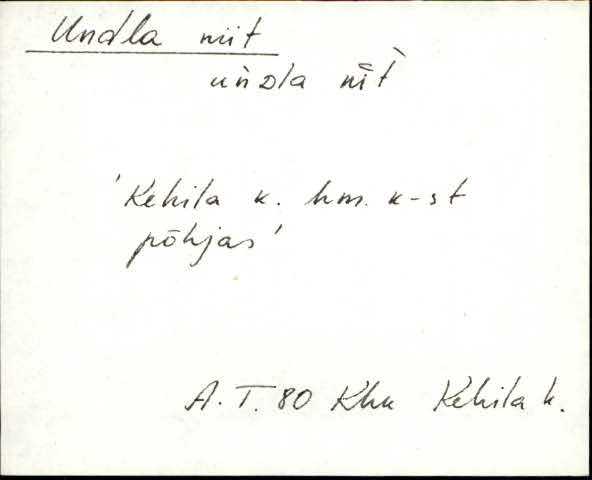 Undla niit
uǹdla nīt̀
'Kehila k. hm. k-st
põhjas'
A. T. 80 Khk Kehila k.